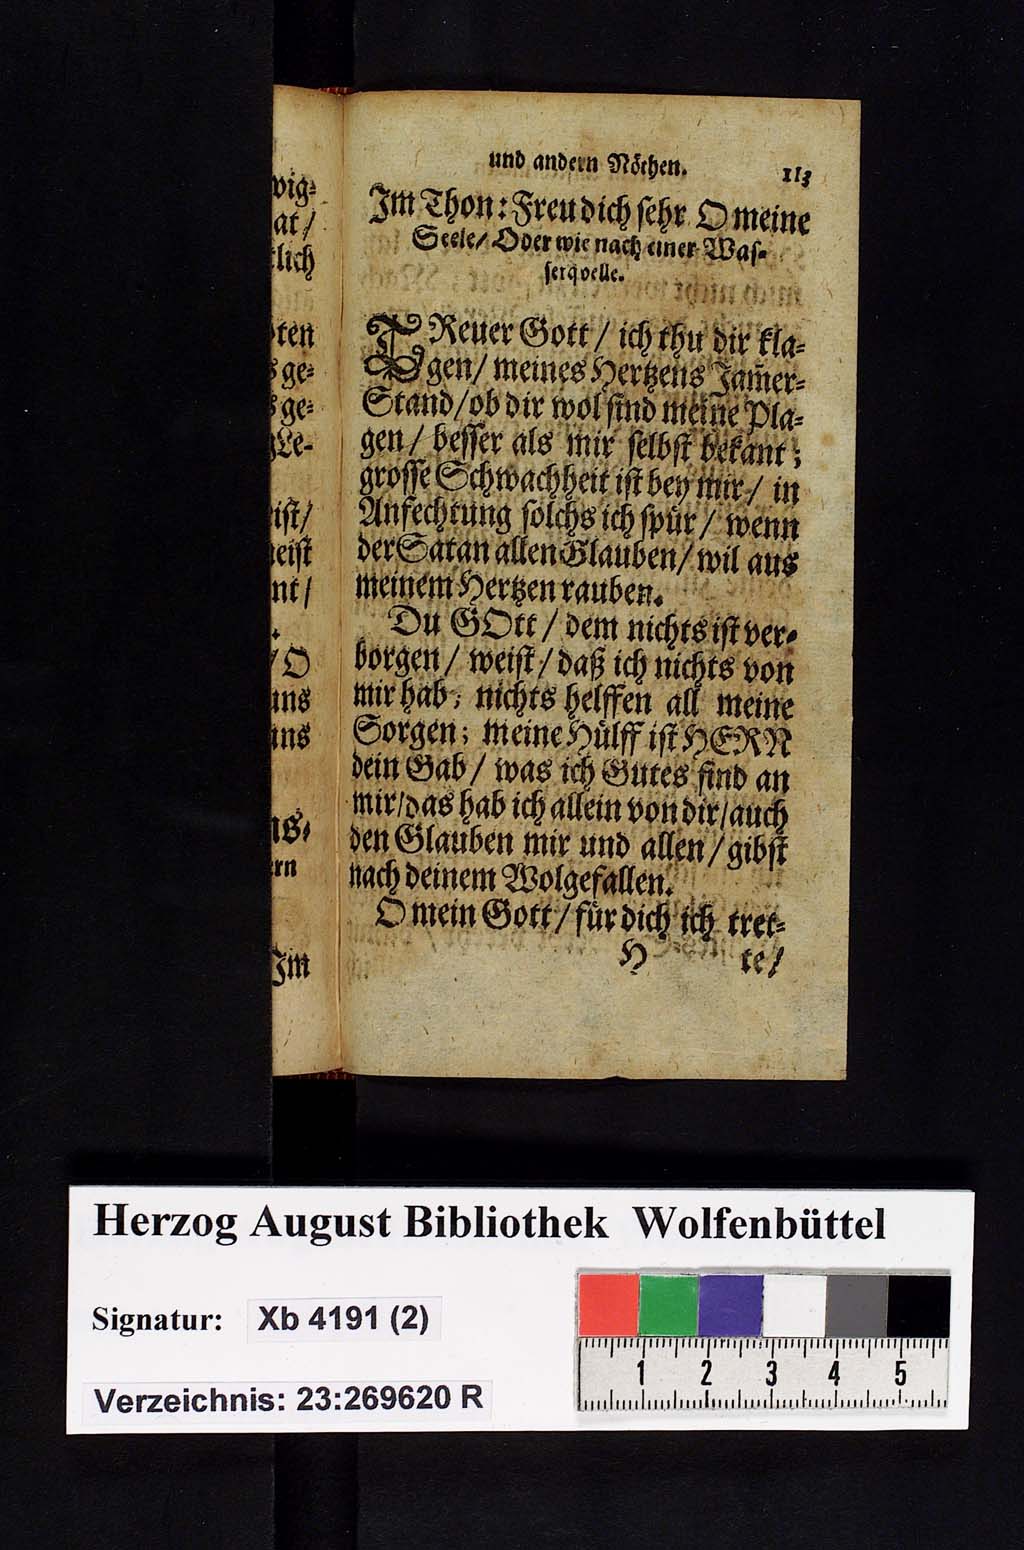 wig⸗
at/
tlich
ten
s ge⸗
s ge⸗
Le-
ist/
eist
nt/
/O
uns
uns
ns⸗
rn
Im
und andern Nöthen. 113
Im Thon: Freu dich sehr O meine
Seele/ Oder wie nach einer Was⸗
serqvelle.
TReuer Gott / ich thu dir kla⸗
gen/ meines Hertzens Jam̃er⸗
Stand/ob dir wol sind meine Pla⸗
gen/ besser als mir selbst bekant;
grosse Schwachheit ist bey mir/ in
Anfechtung solchs ich spür/ wenn
der Satan allen Glauben/ wil aus
meinem Hertzen rauben.
Du GOtt/ dem nichts ist ver⸗
borgen/ weist/ daß ich nichts von
mir hab; nichts helffen all meine
Sorgen; meine Hülff ist HERN
dein Gab/ was ich Gutes find an
mir/das hab ich allein von dir/auch
den Glauben mir und allen/ gibst
nach deinem Wolgefallen.
O mein Gott/ für dich ich tret⸗
H te/
Herzog August Bibliothek Wolfenbüttel
Signatur: Xb 4191 (2)
Verzeichnis: 23:269620 R
1 2 3 4 5